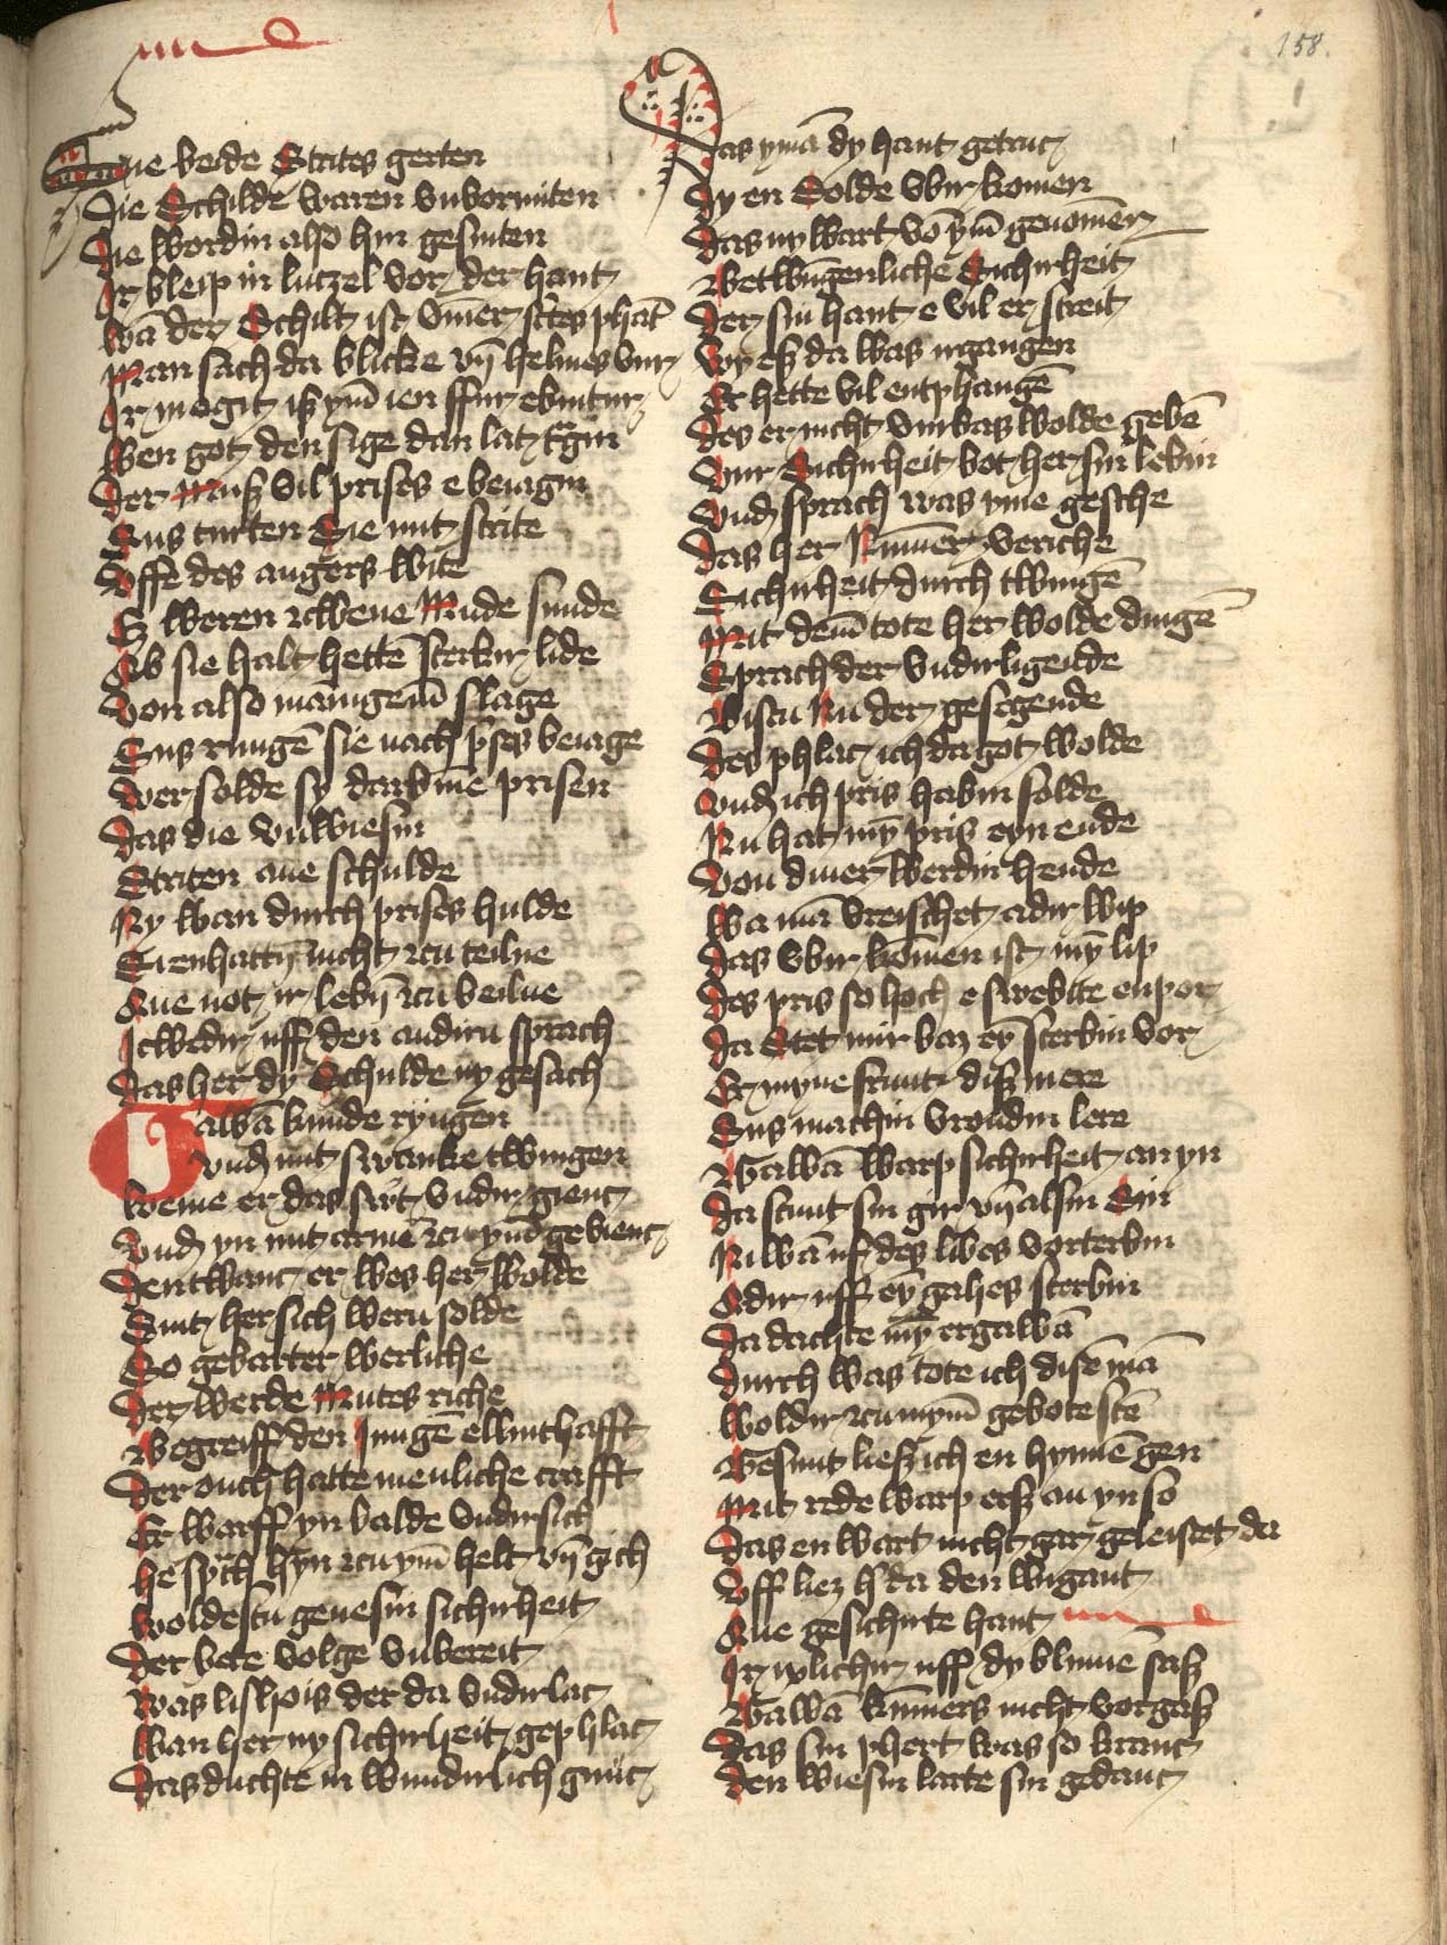 158.
Sue beide Strites gerten
Die Schilde waren vnvormiten
Die wordin also hin gesniten
Ir bleip in lutzel vor der hant
wā der Schilt ist vm̄er strites phāt
Man sach da blicke vn̄ helmes vur
Ir mogit iß ym̄ ien ffur ebintur
wen got den sige dan lat tragin
Der Muß vil prises e beiagin
Sus turten Sie mit strite
Vffe des angers wite
Es weren zcwene Mude smide
Ab sie halt hettē sterkir lide
Von also mānigem̄ slage
Sus rungē sie nach p̄ses beiage
wer solde sy darvm̄e prisen
Das die vnwiesin
Striten ane schulde
Ny wan durch prises hulde
Sienhattn̄ nicht zcu teilne
Ane not ir lebn̄ zcu veilne
Icwedir uff den andirn sprach
Das her dy Schulde ny gesach
Gawā kunde ryngen
vnd mit swanke twingen
weme er das swt vndir gienc
Vnd yn mit armē zcu ym̄ gevienc
Den twanc er wes her wolde
Sint her sich wern solde
So gebarter werliche
Der werde Mutes riche
Begreiff den Jungē ellinthafft
Der ouch hatte menliche crafft
Er warff yn balde vndirsich
he sprch hyn zcu ym̄ helt vn̄ gich
woldestu genesin sichirheit
Der bete volge vnbereit
was lishois der da vndirlac
wan her ny sichirheit gephlac
Das duchte in wundirlich gnuc
Das ymā dy hant getruc
Dy en Solde vbir komen
Das ny wart vō ym̄ genom̄en
Betwūgenliche Sichirheit
Der sin hant e vil er streit
wy eß da was irgangen
Er hette vil entphangē
Des er nicht vmbas wolde gebē
Vur Sichirheit bot her sin lebin
Vnd sprach was yme gesche
Das her Num̄er veriche
Sichirheit durch twingē
Mit dem̄ tote her wolde dingē
Sprach der vndirligende
Bistu Nu der gesegende
Des phlac ich da got wolde
Vnd ich pris habin solde
Nu hat mȳ pris eyn ende
Von diner werdin hende
wa mā vreischet adir wip
Das vbir kom̄en ist mȳ lip
Des pris so hoch e swebtte enpor
Da Stet mir baz eȳ sterbin vor
Er myne frunt diß mere
Sus machin vroudin lere
Gawā warp sichirheit an yn
Da stunt sin gir vn̄ al sin Sin
Niwā uf des libes vorterbin
Adir uff eȳ gahes sterbin
Da dachte mȳ er gawā
Durch was tote ich disē mā
woldir zcu mym̄ gebote stē
Gesunt ließ ich en hynnē gen
Mit rede warp erß an yn so
Das en wart nicht gar geleistet da
Vff liez h' da den wigant
Ane gesichirte hant
Ir iclichir uff dy blumē saß
Gawā kūmers nicht vorgaß
Das sin phert was so kranc
Den wiesin larte sin gedanc